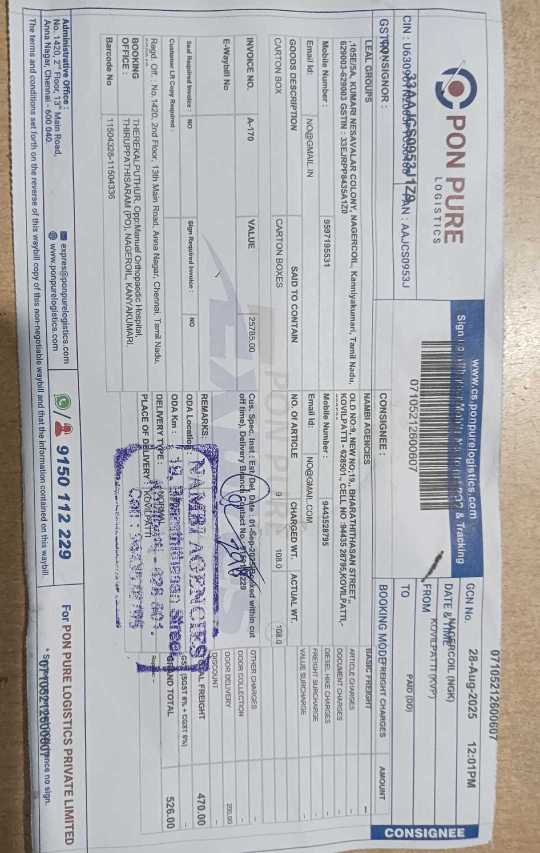 PON PURE
LOGISTICS
www.cs.ponpurelogistics.com
& Tracking
07105212600607
CONSIGNEE
GCN No.
07105212600607
DATE & TIME
28-Aug-2025 12:01PM
FROM
NAGERCOIL (NGK)
TO
KOVILPATTI (KVP)
CIN :
PAN : AAJCS0953J
GSTIN :
33AAJCS0953J1Z9
BOOKING MODE
PAID (DD)
CONSIGNOR :
LEAL GROUPS
,105E/5A, KUMARI NESAVALAR COLONY, NAGERCOIL, Kanniyakumari, Tamil Nadu,
629002-629003 GSTIN : 33EJRPP8435A1Z0
Mobile Number : 9597195531
Email Id: NO@GMAIL.IN
CONSIGNEE :
NAMBI AGENCIES
OLD NO:9, NEW NO:19,, BHARATHITHASAN STREET,
KOVILPATTI - 628501., CELL NO :94435 28795,KOVILPATTI,-
Mobile Number : 9443528795
Email Id: NO@GMAIL.COM
GOODS DESCRIPTION
SAID TO CONTAIN
NO. OF ARTICLE
CHARGED WT.
ACTUAL WT.
CARTON BOX
CARTON BOXES
9
108.0
108.0
INVOICE NO. A-170
VALUE 25765.00
E-Waybill No
Cus. Spec. Inst :
Seal Required Invoice : NO
Sign Required Invoice : NO
Customer LR Copy Required :
REMARKS:
ODA Location
ODA Km :
DELIVERY TYPE : NORMAL
PLACE OF DELIVERY : KOVILPATTI
Regd. Off. : No.1420, 2nd Floor, 13th Main Road, Anna Nagar, Chennai, Tamil Nadu,
BOOKING OFFICE :
THEREKALPUTHUR, Opp:Manuel Orthopaedic Hospital,
THIRUPPATHISARAM (PO), NAGERCOIL, KANYAKUMARI,
Barcode No 11504328-11504336
FREIGHT CHARGES
AMOUNT
BASIC FREIGHT
ARTICLE CHARGES
DOCUMENT CHARGES
DIESEL HIKE CHARGES
FREIGHT SURCHARGE
VALUE SURCHARGE
OTHER CHARGES
DOOR COLLECTION
DOOR DELIVERY 200.00
DISCOUNT
FREIGHT 470.00
GST (SGST 6% + CGST 6%)
TOTAL 526.00
NAMBI AGENCIES
Administrative Office :
No. 1420, 2nd Floor, 13th Main Road,
Anna Nagar, Chennai - 600 040.
expres@ponpurelogistics.com
www.ponpurelogistics.com
9150 112 229
For PON PURE LOGISTICS PRIVATE LIMITED
07105212600607
The terms and conditions set forth on the reverse of this waybill copy of this non-negotiable waybill and that the information contained on this waybill.